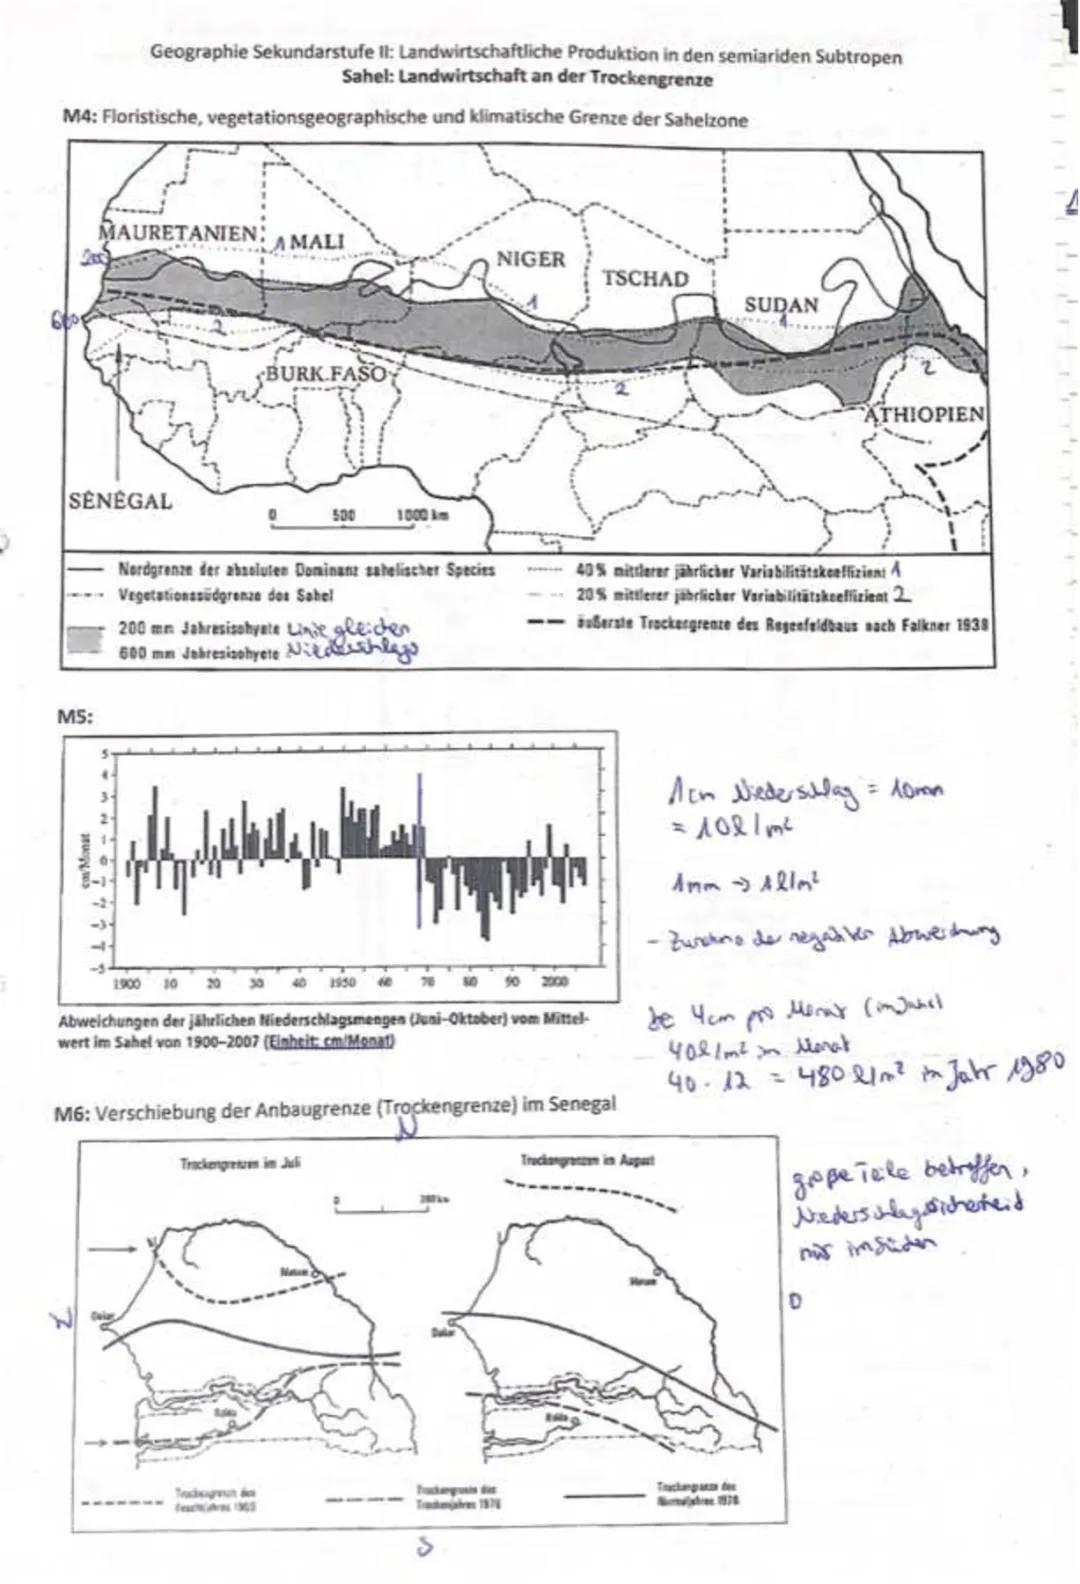 Geographie Sekundarstufe II: Landwirtschaftliche Produktion in den semiariden Subtropen
Sahel: Landwirtschaft an der Trockengrenze
M4: Floristische, vegetationsgeographische und klimatische Grenze der Sahelzone
MAURETANIEN
1 MALI
200
NIGER
TSCHAD
SUDAN
1
1
600
2
BURK.FASO
2
2
ÄTHIOPIEN
SÉNÉGAL
0 500 1000 km
Nordgrenze der absoluten Dominanz sahelischer Species
Vegetationssüdgrenze des Sahel
200 mm Jahresisohyete Linie gleichen
600 mm Jahresisohyete Niederschlags
40 % mittlerer jährlicher Variabilitätskoeffizient 1
20 % mittlerer jährlicher Variabilitätskoeffizient 2
äußerste Trockengrenze des Regenfeldbaus nach Falkner 1938
M5:
5
4
3
2
1
0
-1
-2
-3
-4
-5
cm/Monat
1900 10 20 30 40 1950 60 70 80 90 2000
Abweichungen der jährlichen Niederschlagsmengen (Juni-Oktober) vom Mittel-
wert im Sahel von 1900-2007 (Einheit: cm/Monat)
1cm Niederschlag = 10mm
= 10l/m²
1mm → 1l/m²
- Zunahme der negativen Abweichung
4cm pro Monat (im Jahr)
40l/m² im Monat
40 · 12 = 480 l/m² im Jahr 1980
M6: Verschiebung der Anbaugrenze (Trockengrenze) im Senegal
N
Trockengrenzen im Juli
Trockengrenzen im August
0 200 km
Matam
Matam
Dakar
Dakar
Kolda
Kolda
W
O
S
große Teile betroffen,
Niederschlagssicherheit
nur im Süden
Trockengrenze des
Feuchtjahres
Trockengrenze des
Trockenjahres
Trockengrenze des
Normaljahres